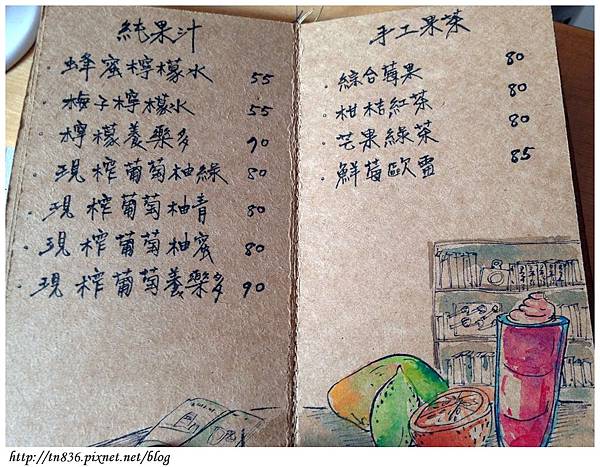 純果汁
·蜂蜜檸檬水 55
·梅子檸檬水 55
·檸檬養樂多 70
·現榨葡萄柚綠 80
·現榨葡萄柚青 80
·現榨葡萄柚蜜 80
·現榨葡萄養樂多 90
手工果茶
·綜合莓果 80
·柑桔紅茶 80
·芒果綠茶 80
·鮮莓歐蕾 85
http://tn836.pixnet.net/blog